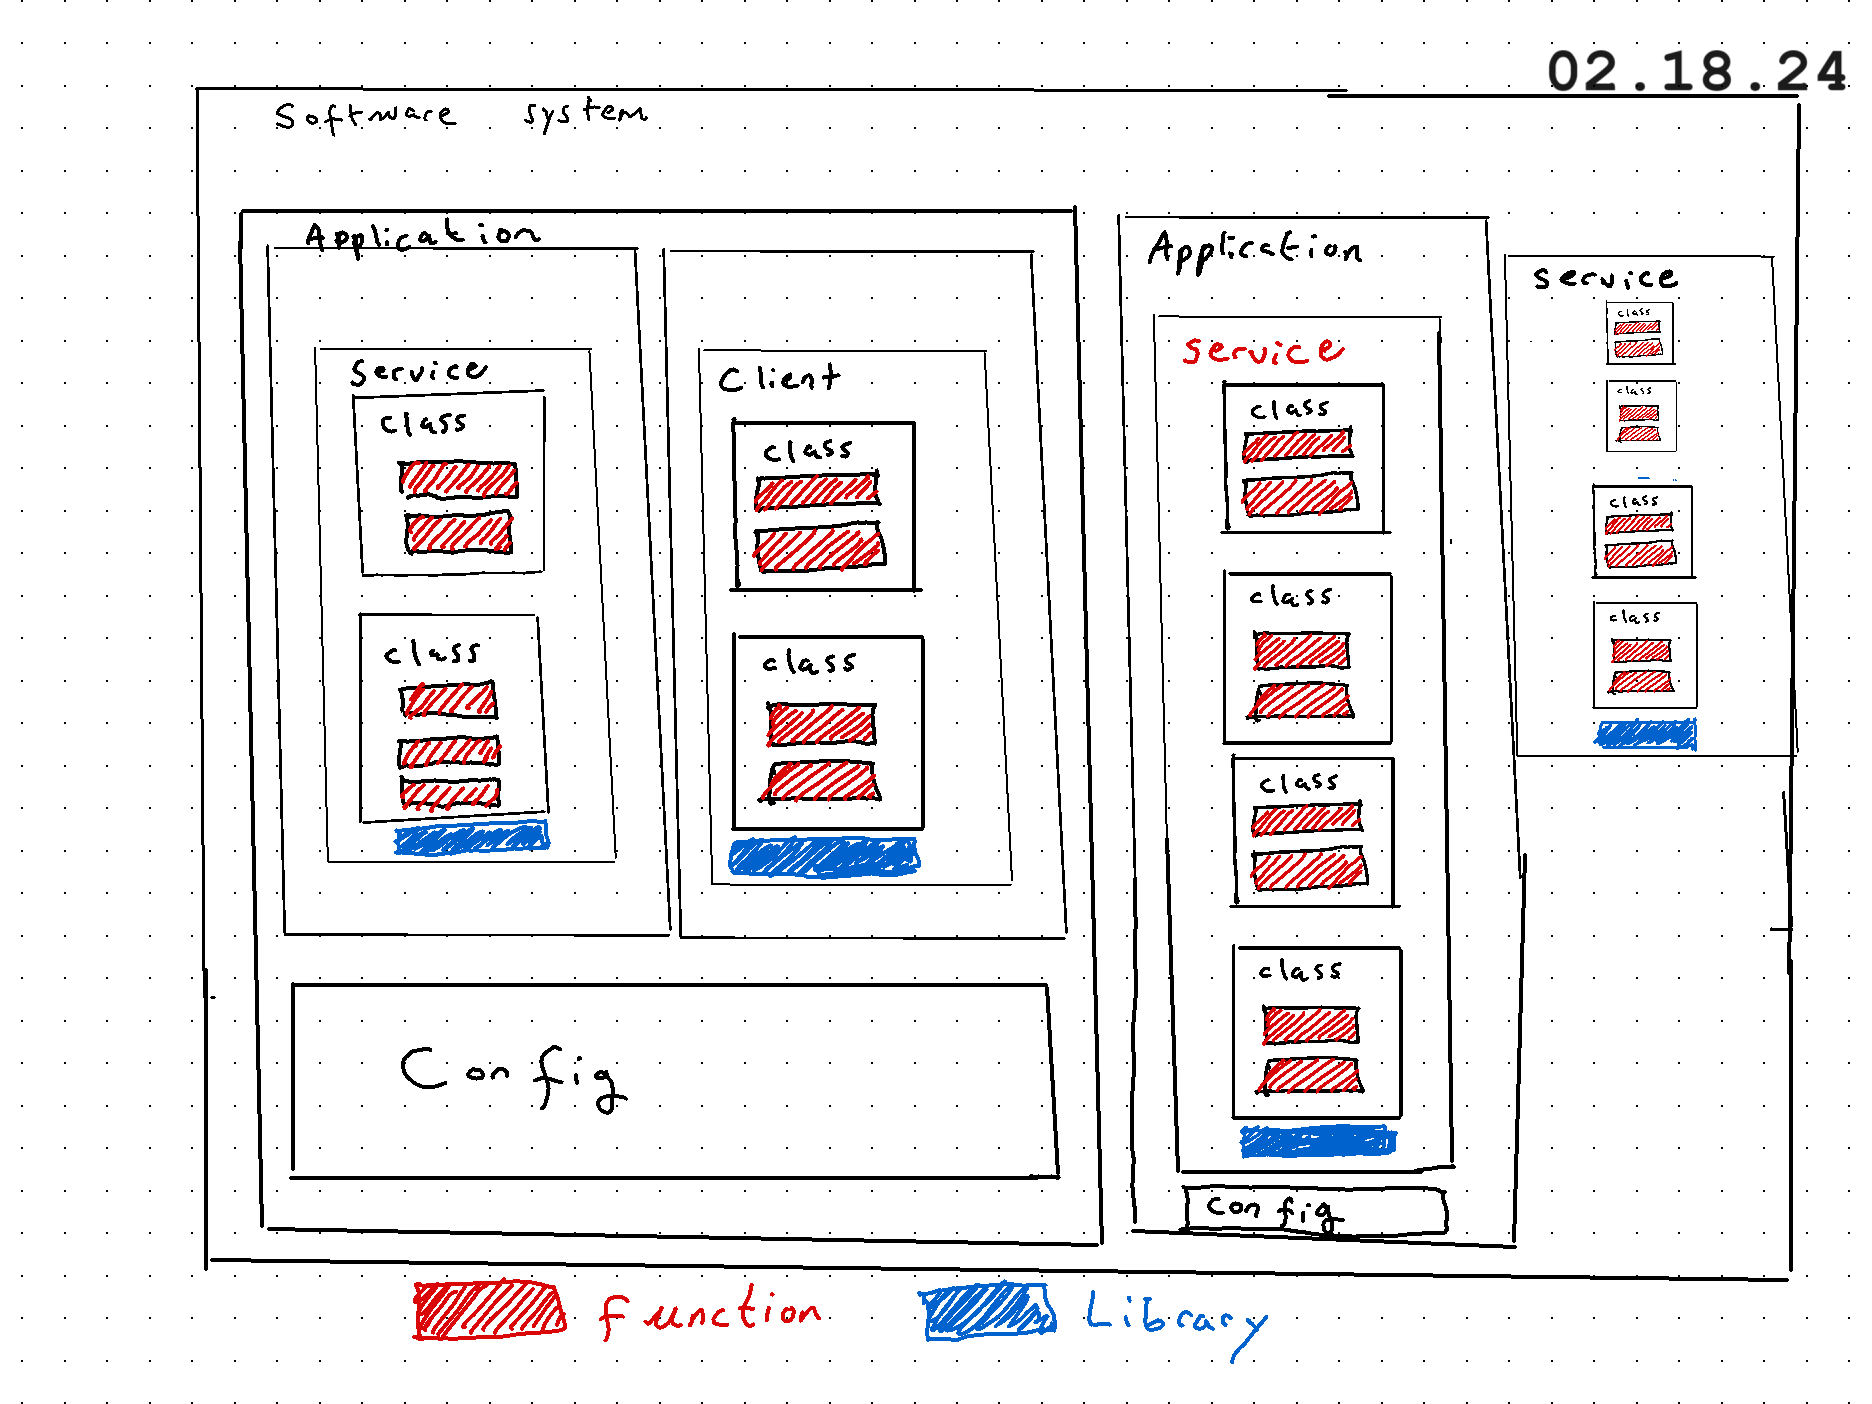 02.18.24
Software system
Application
Service
class
class
Client
class
class
Config
Application
service
class
class
class
class
Config
Service
class
class
class
class
function
Library